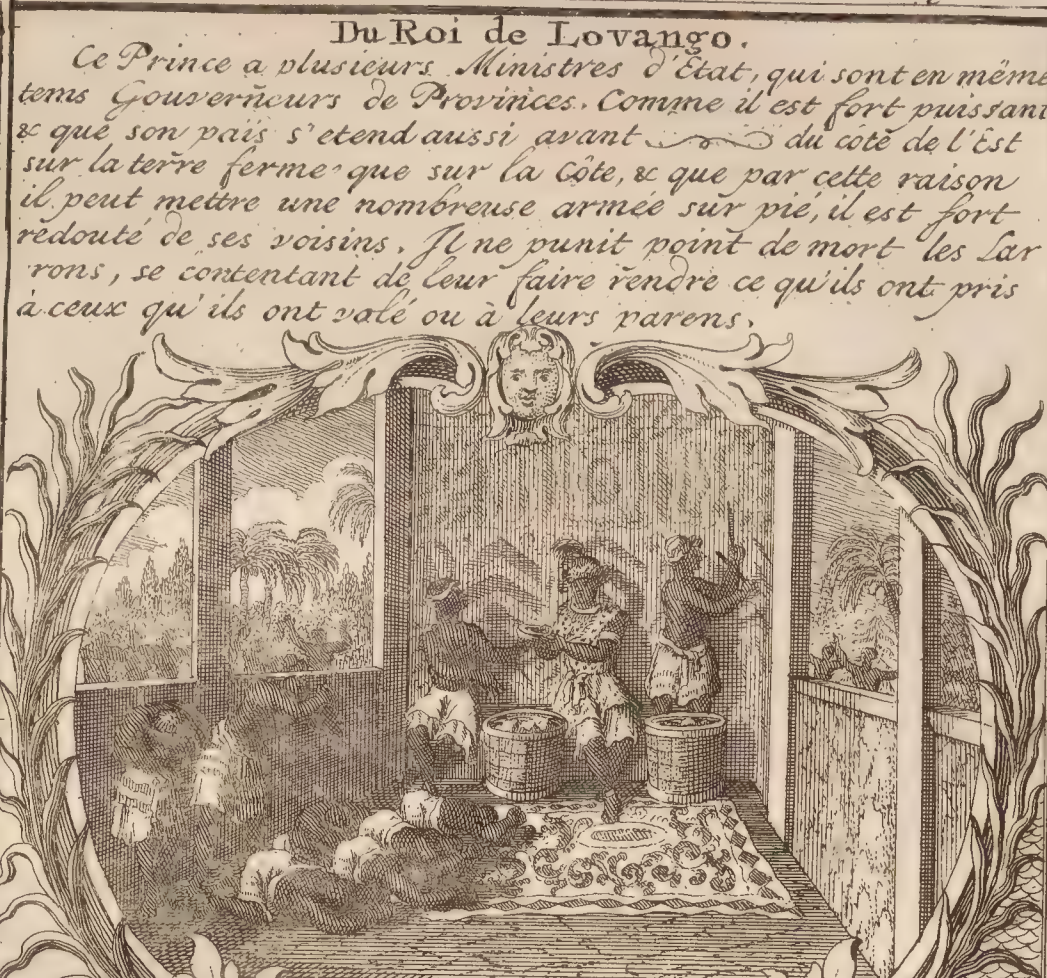 Du Roi de Lovango.
Ce Prince a plusieurs Ministres d'Etat, qui sont en même
tems Gouverneurs de Provinces. Comme il est fort puissant
& que son païs s'etend aussi avant du côté de l'Est
sur la terre ferme que sur la Côte, & que par cette raison
il peut mettre une nombreuse armée sur pié, il est fort
redouté de ses voisins. Il ne punit point de mort les Lar
rons, se contentant de leur faire rendre ce qu'ils ont pris
à ceux qu'ils ont volé ou à leurs parens.